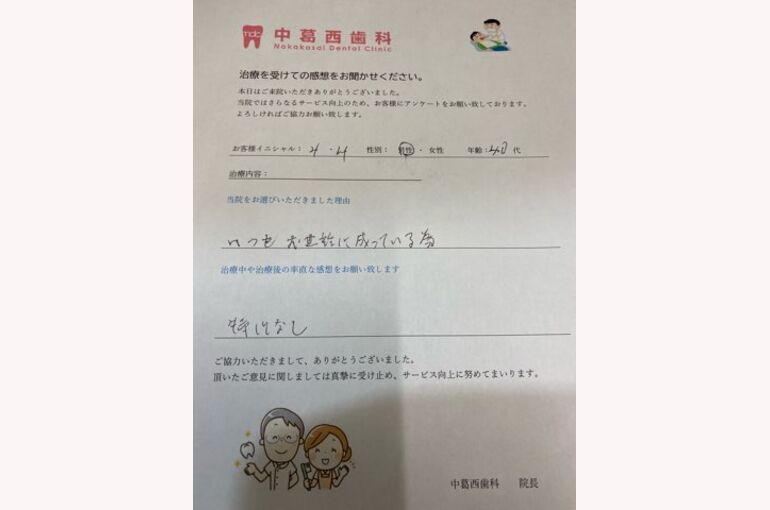 ndc 中葛西歯科
Nakakasai Dental Clinic
治療を受けての感想をお聞かせください。
本日はご来院いただきありがとうございました。
当院ではさらなるサービス向上のため、お客様にアンケートをお願い致しております。
よろしければご協力お願い致します。
お客様イニシャル： ・ 性別： 男性 ・ 女性 年齢：40代
治療内容：
当院をお選びいただきました理由
いつもお世話に成っている為
治療中や治療後の率直な感想をお願い致します
特になし
ご協力いただきまして、ありがとうございました。
頂いたご意見に関しましては真摯に受け止め、サービス向上に努めてまいります。
中葛西歯科 院長